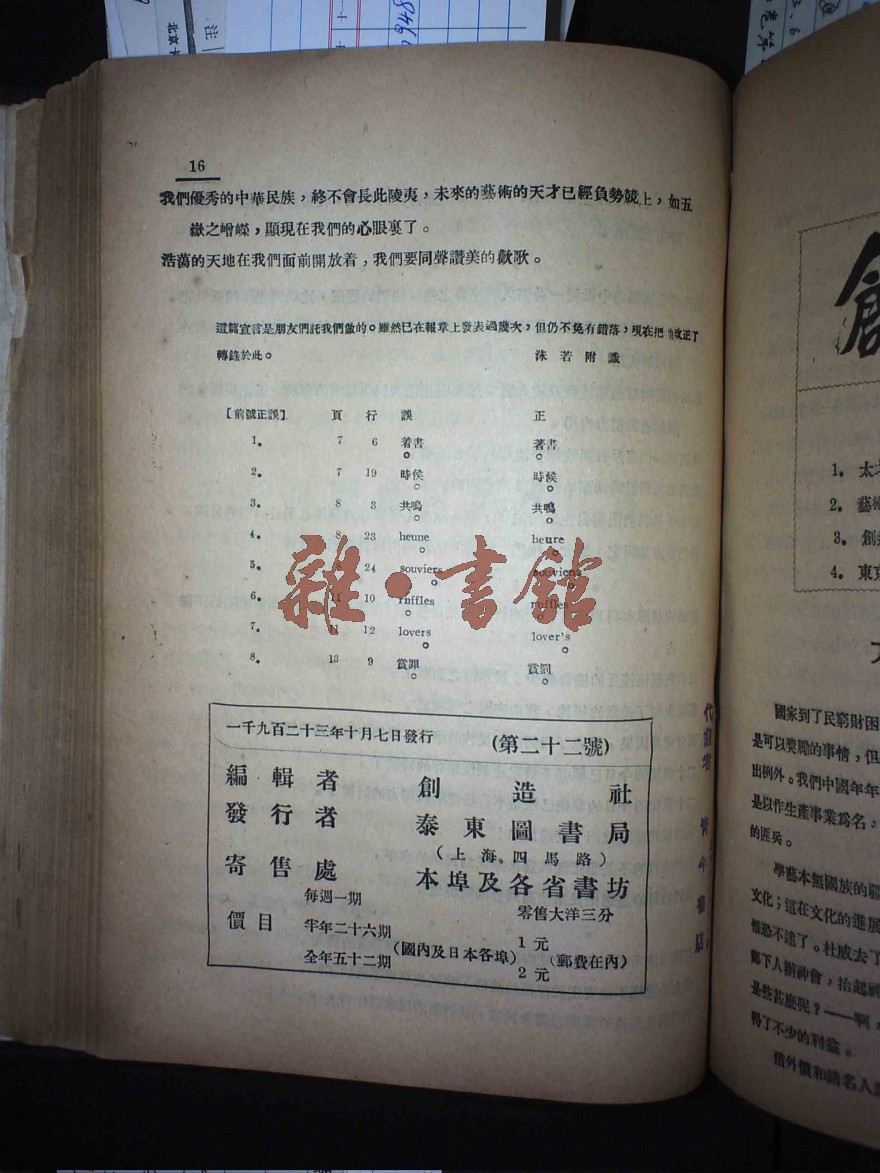 16
我們優秀的中華民族，終不會長此陵夷，未來的藝術的天才已經負勢競上，如五
嶽之崢嶸，顯現在我們的心眼裏了。
浩蕩的天地在我們面前開放着，我們要同聲讚美的歡歌。
這篇宣言是朋友們託我們做的。雖然已在報章上發表過幾次，但仍不免有錯落，現在把 改正了
轉錄於此。 沫若附識
〔前號正誤〕 頁 行 誤 正
1。 7 6 着書 著書
2。 7 19 時侯 時候
3。 8 3 共鳴 共鳴
4。 8 23 heune heure
5。 8 24 souviers souviens
6。 11 10 rnffles ruffles
7。 11 12 lovers lover's
8。 13 9 賞罪 賞罰
雜·書館
一千九百二十三年十月七日發行 (第二十二號)
編輯者 創造社
發行者 泰東圖書局
(上海四馬路)
寄售處 本埠及各省書坊
每週一期 零售大洋三分
價目 半年二十六期 (國內及日本各埠) 1元 (郵費在內)
全年五十二期 2元
創
1。太
2。藝術
3。創
4。東京
國家到了民窮財困
是可以獎勵的事情，但
出例外。我們中國年年
是以作生產事業爲名，
的匪兵。
學藝本無國族的疆
文化；這在文化的進展
惟恐不遑了。杜威去了
鄉下人辦神會，抬起
是些甚麼呢？——啊，
得了不少的利益。
借外債和請名人